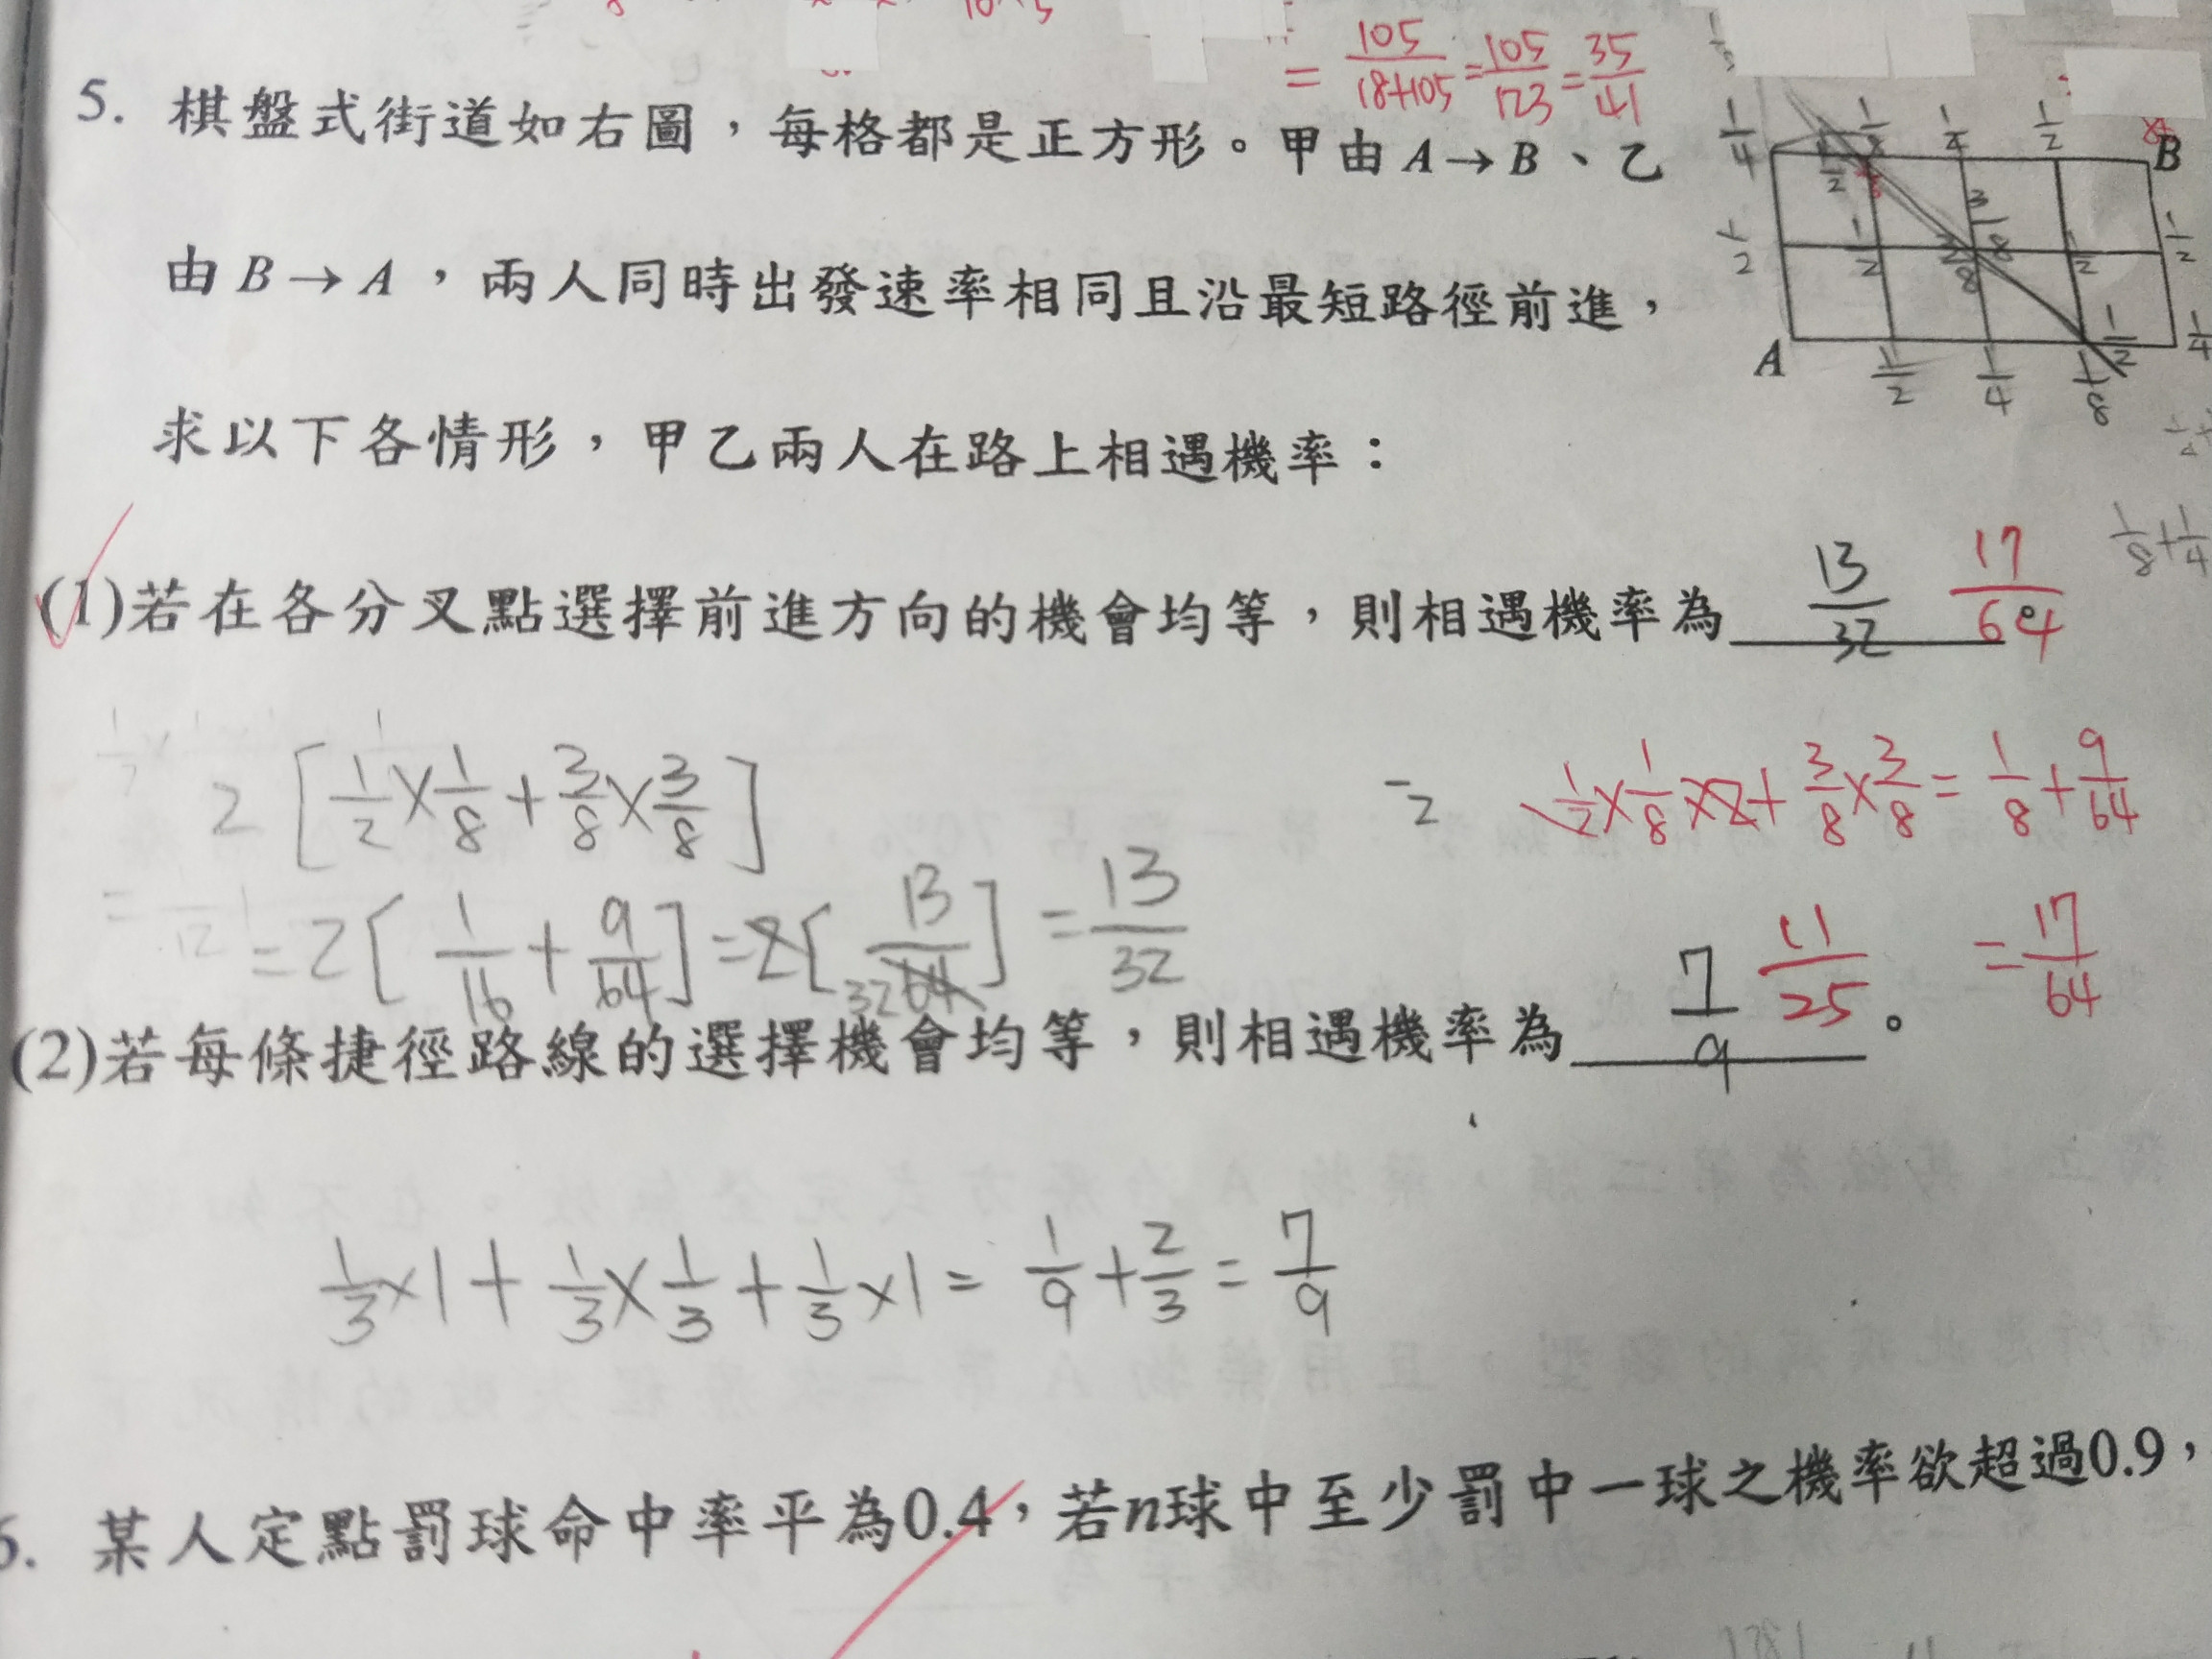 = 105/18+105 = 105/123 = 35/41
5. 棋盤式街道如右圖，每格都是正方形。甲由 A→B、乙
由 B→A，兩人同時出發速率相同且沿最短路徑前進，
求以下各情形，甲乙兩人在路上相遇機率：
1/4 1/2 1/2 B
1/2 1/2 3/8 1/2
A 1/2 1/4 1/8 1/2 1/4
(1)若在各分叉點選擇前進方向的機會均等，則相遇機率為 13/32 17/64
1/8+1/4
2[1/2×1/8+3/8×3/8]
1/2×1/8×2+3/8×3/8=1/8+9/64
=2[1/16+9/64]=2[13/64]=13/32
=17/64
(2)若每條捷徑路線的選擇機會均等，則相遇機率為 7/9 11/25。
1/3×1+1/3×1/3+1/3×1=1/9+2/3=7/9
6. 某人定點罰球命中率平為0.4，若n球中至少罰中一球之機率欲超過0.9，